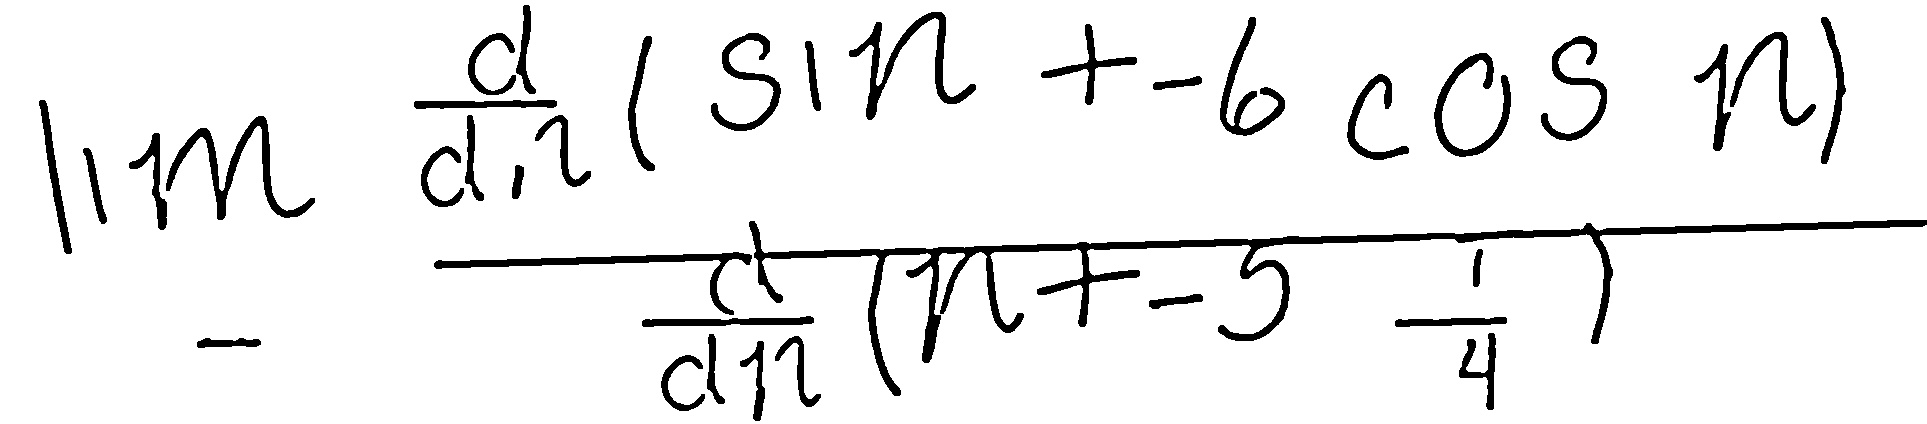 lim d/dn (sin + -6 cos n)
_ d/dn (n + -5 1/4)